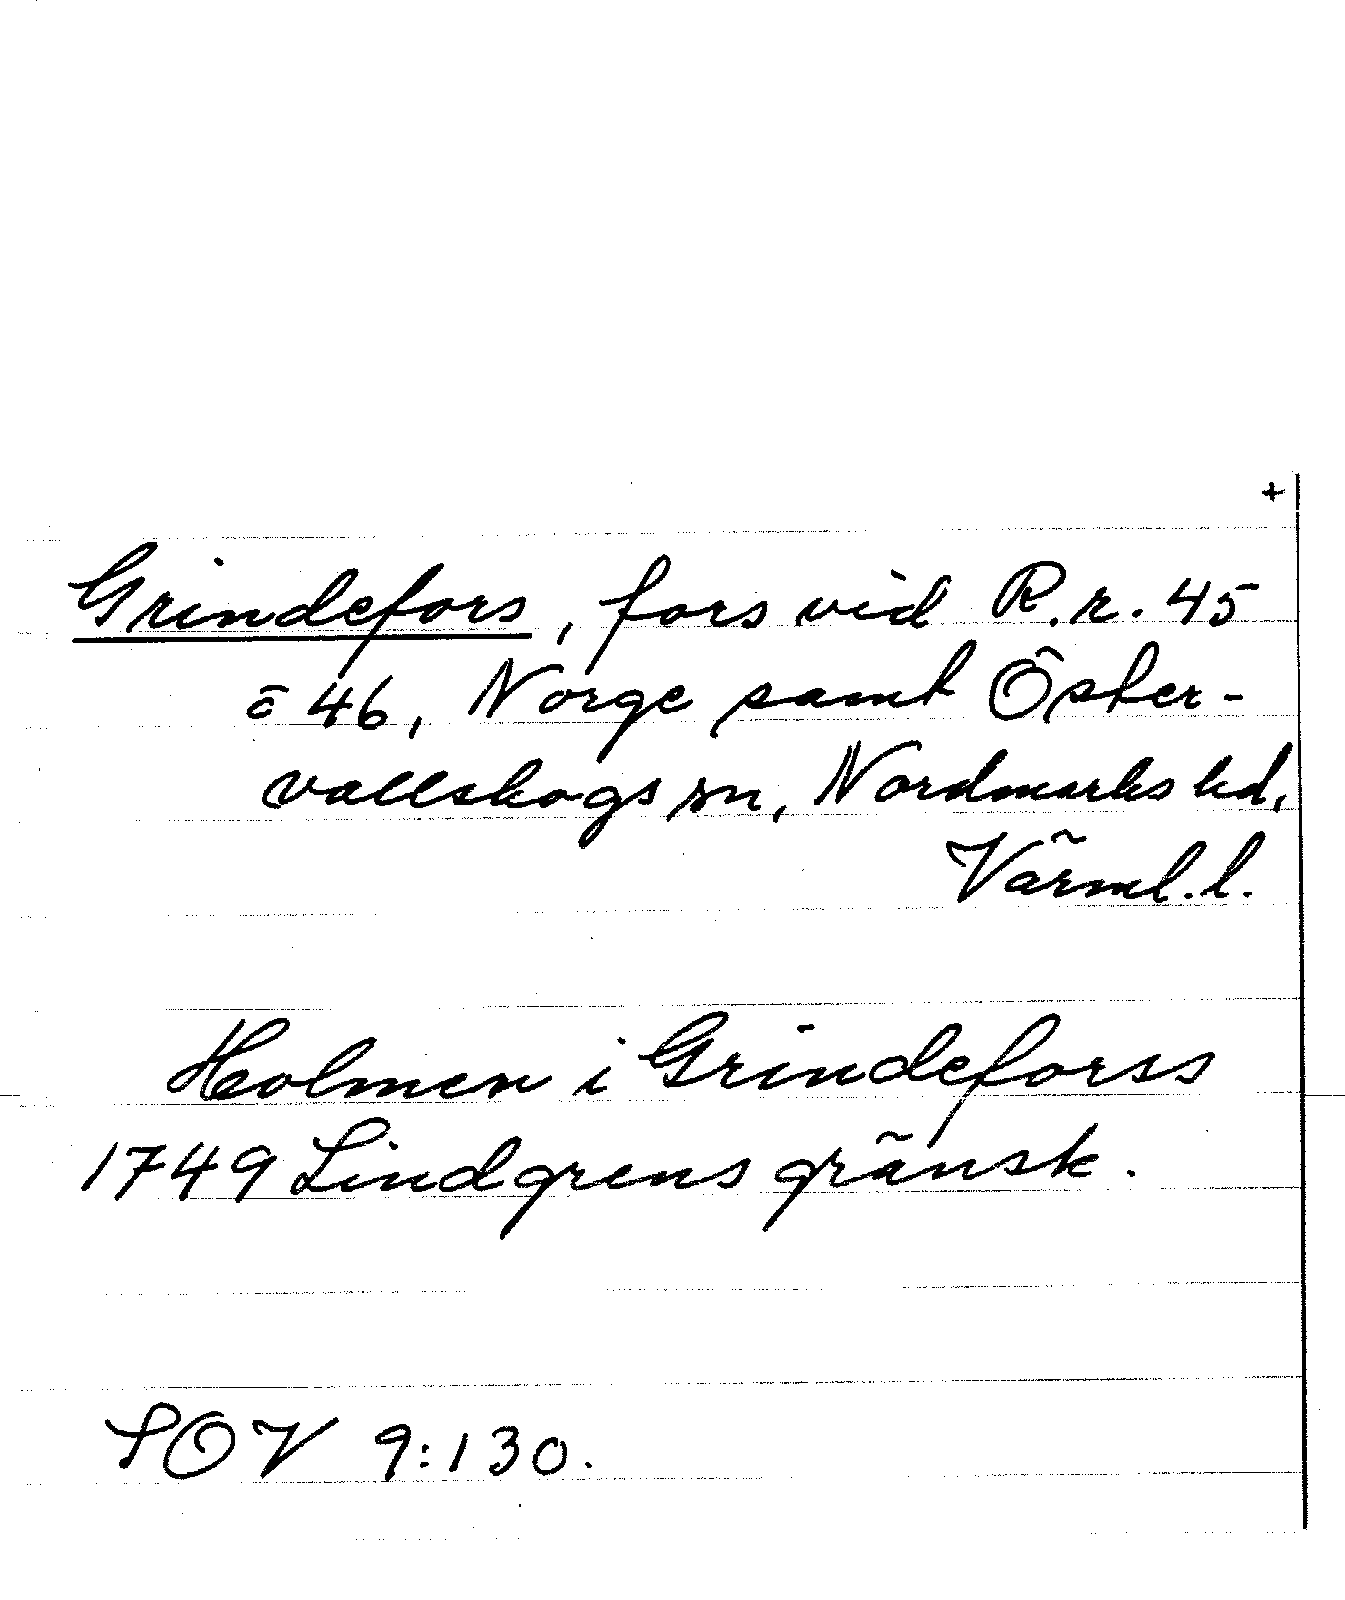 +
Grindefors, fors vid R.r. 45
o 46, Norge samt Öster-
vallskogs sn, Nordmarks hd,
Värml. l.
Holmen i Grindeforss
1749 Lindgrens gränsk.
SOV 9:130.